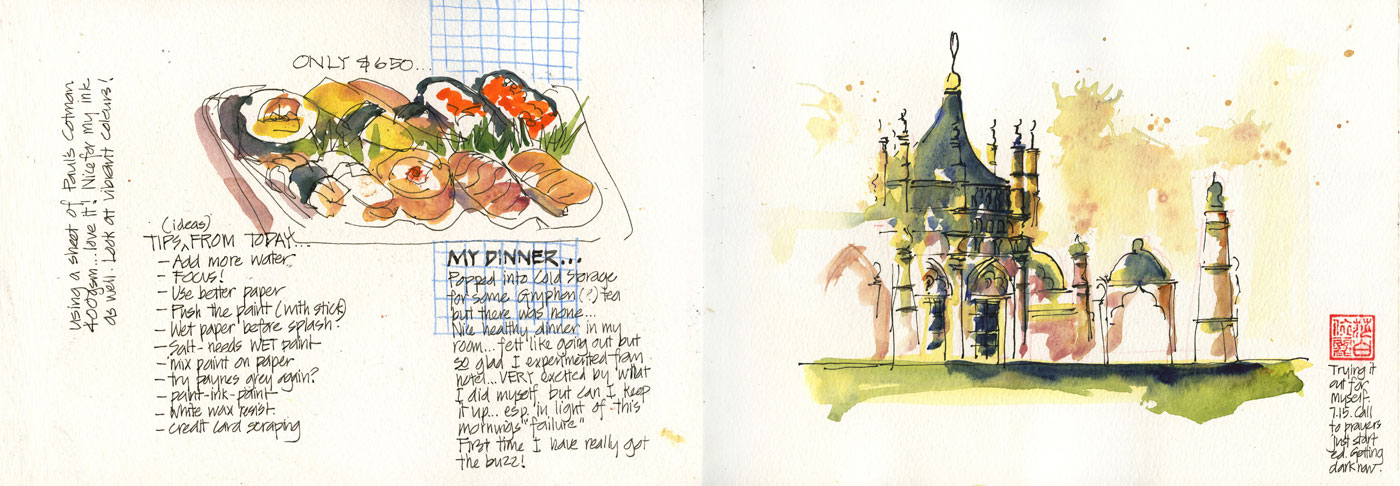 ONLY $6.50...
Using a sheet of Paul's Cotman
400gsm...love it! Nice for my ink
as well. Look at vibrant colours!
(ideas)
TIPS FROM TODAY...
- Add more water
- FOCUS!
- Use better paper
- Push the paint (with stick)
- Wet paper before splash?
- Salt - needs WET paint
- mix paint on paper
- try paynes grey again?
- paint-ink-paint
- White wax resist
- Credit card scraping
MY DINNER...
Popped into Cold Storage
for some Gryphon (?) tea
but there was none...
Nice healthy dinner in my
room... felt like going out but
so glad I experimented from
hotel... VERY excited by what
I did myself but can I keep
it up... esp. in light of this
mornings "failure"
First time I have really got
the buzz!
Trying it
out for
myself.
7.15. Call
to prayers
just start
ed. Getting
dark now.